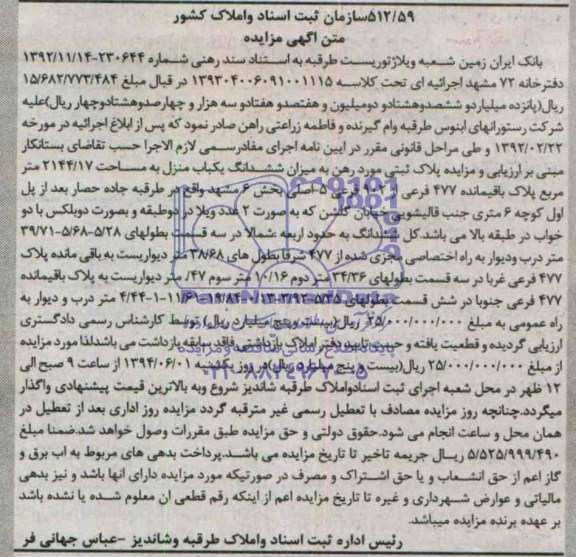 ۵۱۲/۵۹سازمان ثبت اسناد واملاک کشور
متن اگهی مزایده
بانک ایران زمین شعبه ویلاژتوریست طرقبه به استناد سند رهنی شماره ۲۳۰۶۴۴-۱۳۹۲/۱۱/۱۴
دفترخانه ۷۲ مشهد اجرائیه ای تحت کلاسه ۱۳۹۳۰۴۰۰۶۰۹۱۰۰۱۱۱۵ در قبال مبلغ ۱۵/۶۸۲/۷۷۳/۴۸۴
ریال(پانزده میلیاردو ششصدوهشتادو دومیلیون و هفتصدو هفتادو سه هزار و چهارصدوهشتادوچهار ریال)علیه
شرکت رستورانهای ابنوس طرقبه وام گیرنده و فاطمه زراعتی راهن صادر نمود که پس از ابلاغ اجرائیه در مورخه
۱۳۹۲/۰۲/۲۲ و طی مراحل قانونی مقرر در ایین نامه اجرای مفادرسمی لازم الاجرا حسب تقاضای بستانکار
مبنی بر ارزیابی و مزایده پلاک ثبتی مورد رهن به میزان ششدانگ یکباب منزل به مساحت ۲۱۴۴/۱۷ متر
مربع پلاک باقیمانده ۴۷۷ فرعی از فرعی ۵ اصلی بخش ۶ مشهد واقع در طرقبه جاده حصار بعد از پل
اول کوچه ۶ متری جنب قالیشویی خیابان گلشن که به صورت ۲ عدد ویلا در دوطبقه و بصورت دوبلکس با دو
خواب در طبقه بالا می باشد.کل ششدانگ به حدود اربعه :شمالا در سه قسمت بطولهای ۵/۲۸-۵/۶۸-۳۹/۷۱
متر درب ودیوار به راه اختصاصی مجزی شده از ۴۷۷ شرقا بطول های ۳۸/۶۸ متر دیواریست به باقی مانده پلاک
۴۷۷ فرعی غربا در سه قسمت بطولهای ۳۴/۳۶ متر دوم ۱۰/۱۶ متر سوم ۴۷/ متر دیواریست به پلاک باقیمانده
۴۷۷ فرعی جنوبا در شش قسمت بطولهای متر درب و دیوار به
راه عمومی به مبلغ ۲۵/۰۰۰/۰۰۰/۰۰۰ ریال(بیست وپنج میلیارد ریال) توسط کارشناس رسمی دادگستری
ارزیابی گردیده و قطعیت یافته و حسب تایید دفتر املاک بازداشتی فاقد سابقه بازداشت می باشدلذا مورد مزایده
از مبلغ ۲۵/۰۰۰/۰۰۰/۰۰۰ ریال(بیست و پنج میلیارد ریال)در روز یکشنبه ۱۳۹۴/۰۶/۰۱ از ساعت ۹ صبح الی
۱۲ ظهر در محل شعبه اجرای ثبت اسنادواملاک طرقبه شاندیز شروع وبه بالاترین قیمت پیشنهادی واگذار
میگردد.چنانچه روز مزایده مصادف با تعطیل رسمی غیر مترقبه گردد مزایده روز اداری بعد از تعطیل در
همان محل و ساعت انجام می شود.حقوق دولتی و حق مزایده طبق مقررات وصول خواهد شد.ضمنا مبلغ
۵/۵۲۵/۹۹۹/۴۹۰ ریال جریمه تاخیر تا تاریخ مزایده می باشد.پرداخت بدهی های مربوط به اب برق و
گاز اعم از حق انشعاب و یا حق اشتراک و مصرف در صورتیکه مورد مزایده دارای انها باشد و نیز بدهی
مالیاتی و عوارض شهرداری و غیره تا تاریخ مزایده اعم از اینکه رقم قطعی ان معلوم شده یا نشده باشد
بر عهده برنده مزایده میباشد.
رئیس اداره ثبت اسناد واملاک طرقبه وشاندیز -عباس جهانی فر